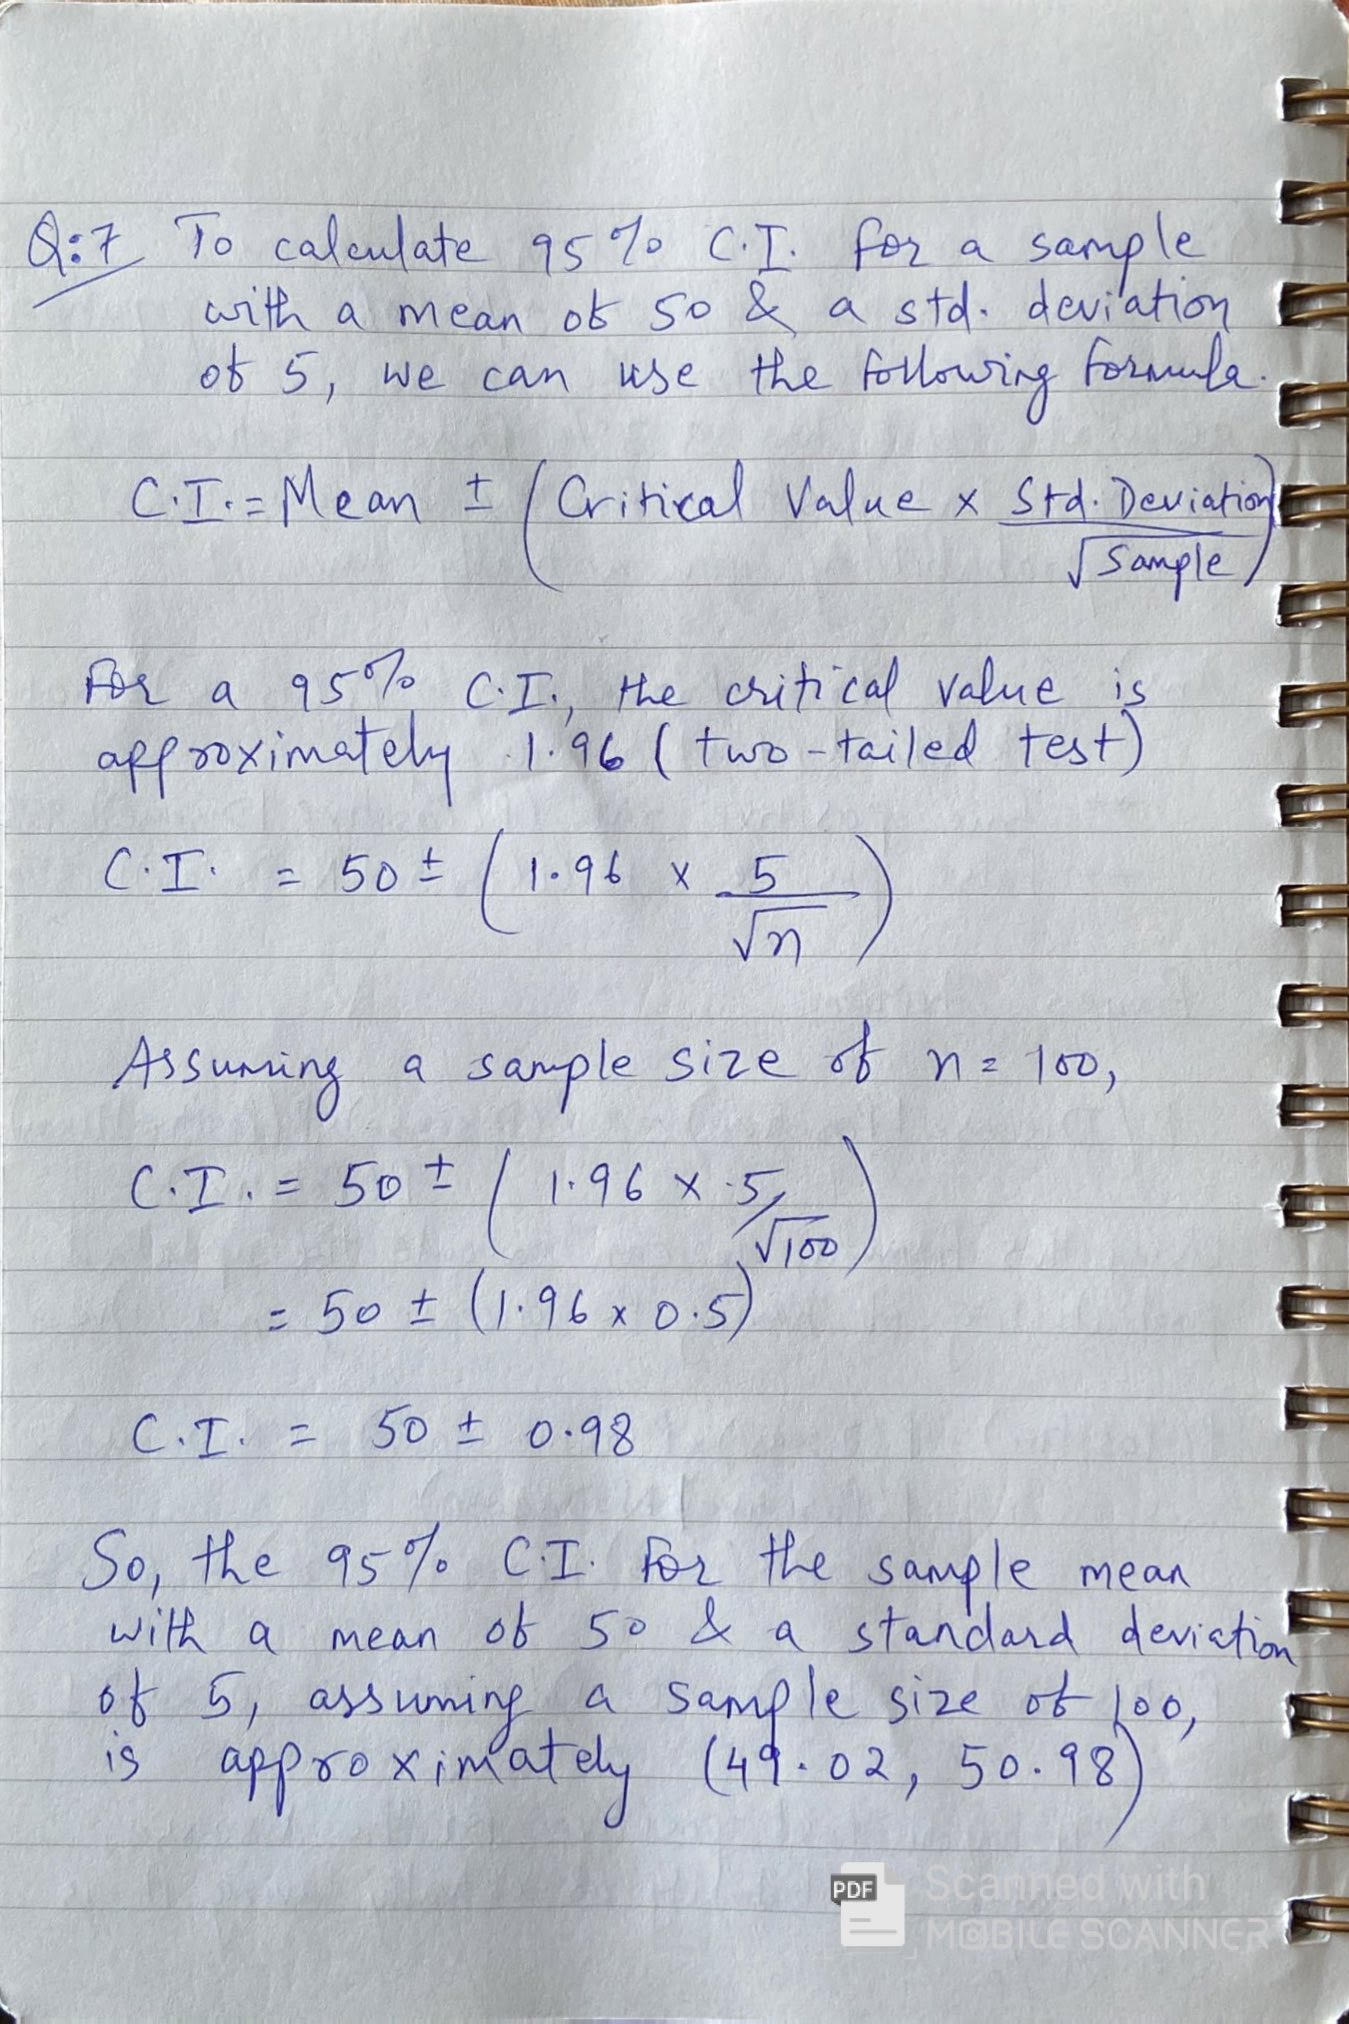 Q:7 To calculate 95% C.I. for a sample
with a mean of 50 & a std. deviation
of 5, we can use the following formula.
C.I. = Mean ± (Critical Value × Std. Deviation
√Sample)
For a 95% C.I., the critical value is
approximately 1.96 (two-tailed test)
C.I. = 50 ± (1.96 × 5
√n)
Assuming a sample size of n = 100,
C.I. = 50 ± (1.96 × 5/
√100)
= 50 ± (1.96 × 0.5)
C.I. = 50 ± 0.98
So, the 95% C.I. for the sample mean
with a mean of 50 & a standard deviation
of 5, assuming a sample size of 100,
is approximately (49.02, 50.98)
PDF Scanned with
MOBILE SCANNER